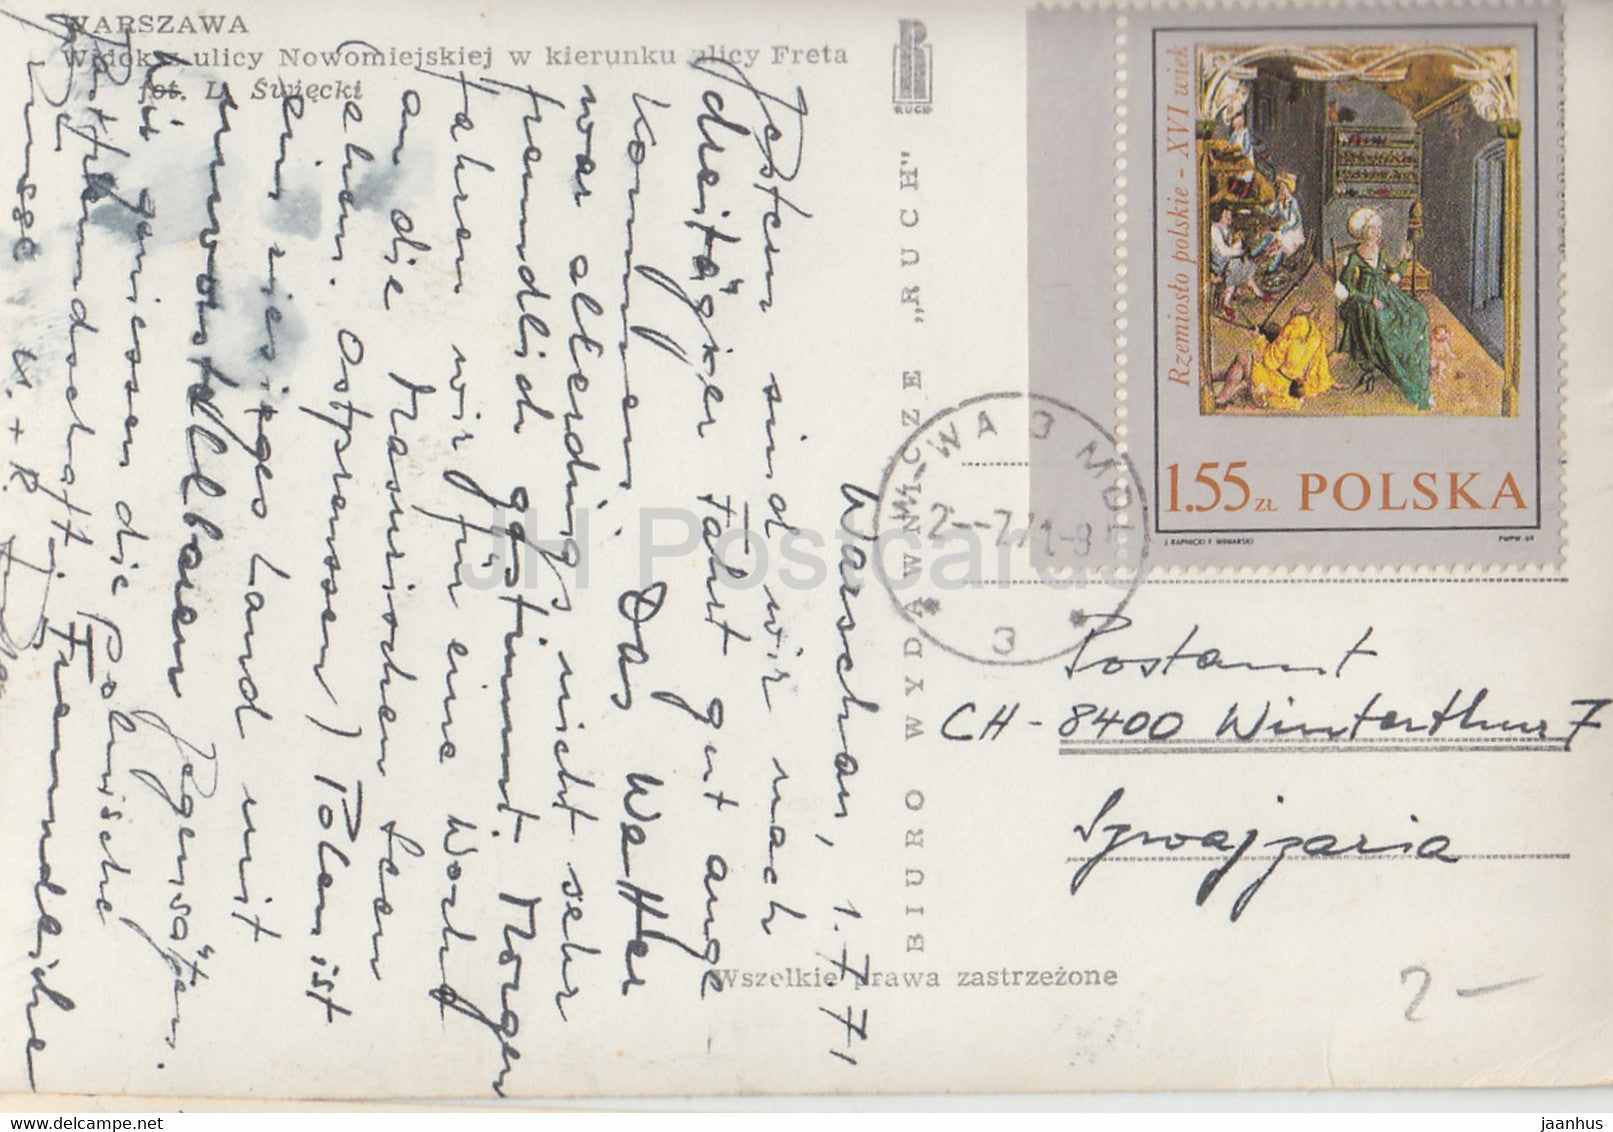 WARSZAWA
Widok z ulicy Nowomiejskiej w kierunku ulicy Freta
fot. L. Święcki
RUCH
BIURO WYDAWNICZE "RUCH"
Wszelkie prawa zastrzeżone
Rzemiosło polskie - XVI wiek
1.55 ZŁ POLSKA
J. RAPNICKI F. WINIARSKI
PWPW - 69
W-WA 3
2.-7.71-9
3
Warschau, 1.7.71
Gestern sind wir nach
dreitägiger Fahrt gut ange
kommen. Das Wetter
war allerdings nicht sehr
freundlich gestimmt. Morgen
fahren wir für eine Woche
an die Masurischen Seen
(ehem. Ostpreussen) Polen ist
ein riesiges Land mit
unvorstellbaren Gegensätzen.
Wir geniessen die Polnische
Gastfreundschaft. Freundliche
Grüsse
Postamt
CH - 8400 Winterthur 7
Szwajzaria
2 -
JH Postcards
www.delcampe.net
jaanhus